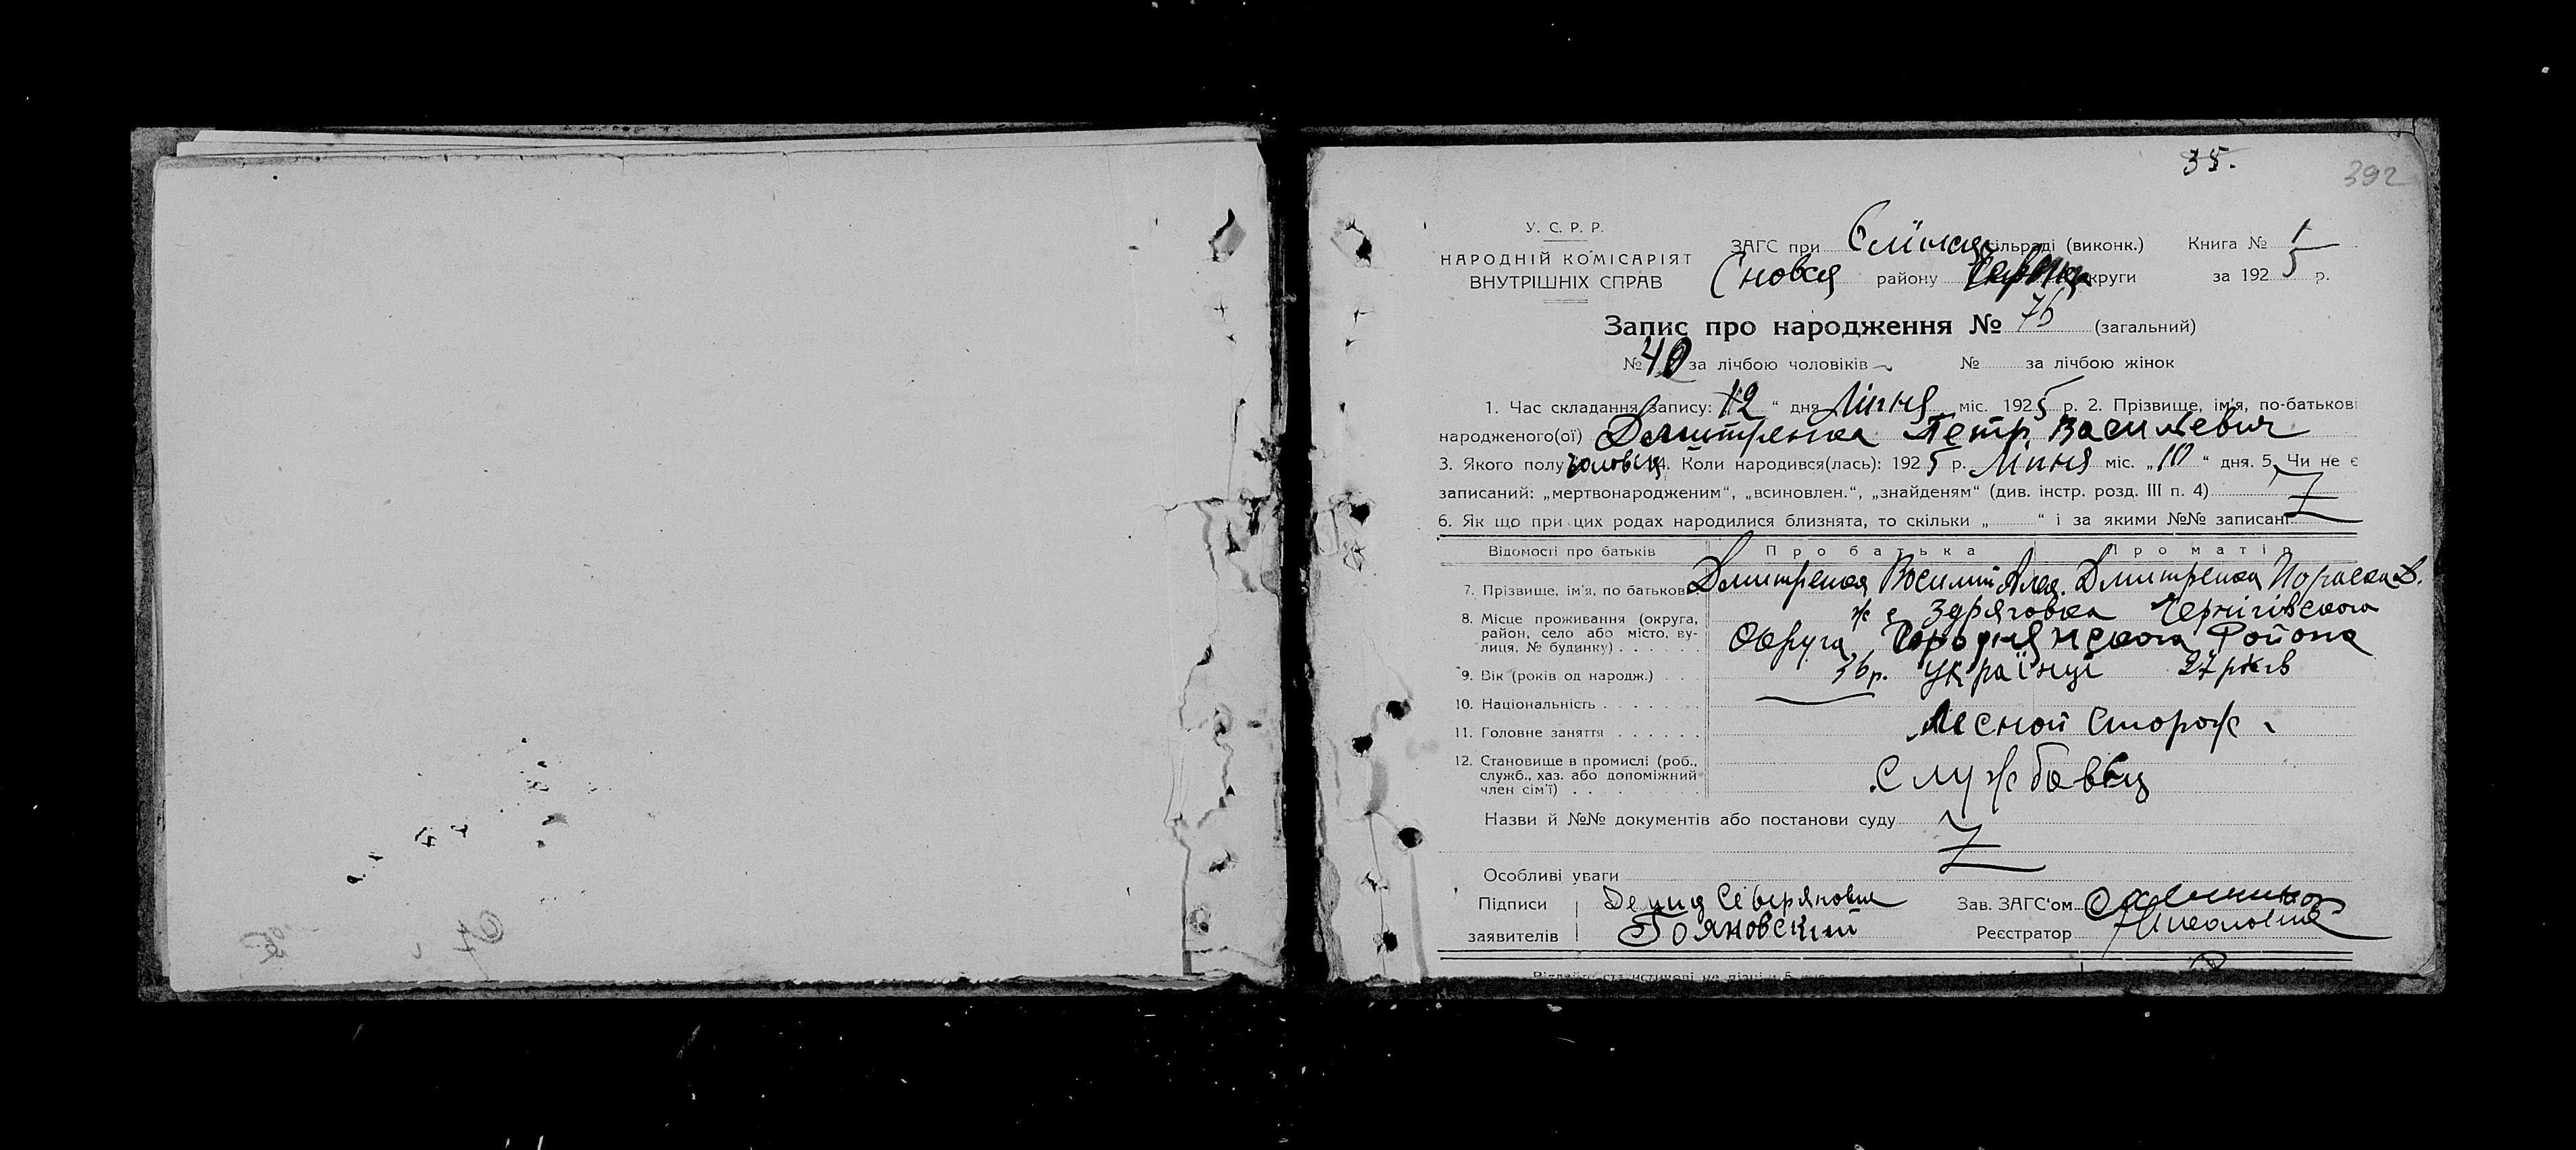 35.
392
У. С. Р. Р.
НАРОДНІЙ КОМІСАРІЯТ
ВНУТРІШНІХ СПРАВ
ЗАГС при сільраді (виконк.) Книга № 1
Сновск району округи за 1925 р.
Запис про народження № 76 (загальний)
№ 40 за лічбою чоловіків № за лічбою жінок
1. Час складання запису: 12 “ дня Липня міс. 1925 р. 2. Прізвище, ім'я, по-батькові
народженого(ої) Дмитренка Петр Васильевич
3. Якого полу чоловіч 4. Коли народився(лась): 1925 р. Липня міс. „10 “ дня. 5. Чи не є
записаний: „мертвонародженим“, „всиновлен.“, „знайденям“ (див. інстр. розд. III п. 4)
6. Як що при цих родах народилися близнята, то скільки „ “ і за якими №№ записані
Відомості про батьків Про батька Про матір
7. Прізвище, ім'я, по батькові Дмитренка Василий Дмитренка Параска
8. Місце проживання (округа, район, село або місто, вулиця, № будинку) Здряговка Чернігівского
Округа Городнянского Района
9. Вік (років од народж.) 36 р. Українці 27 років
10. Національність
11. Головне заняття Лесной сторож
12. Становище в промислі (роб., служб., хаз. або допоміжний член сім'ї) Службовец
Назви й №№ документів або постанови суду
Особливі уваги
Підписи Северянович Зав. ЗАГС'ом
заявителів Гояновский Реєстратор